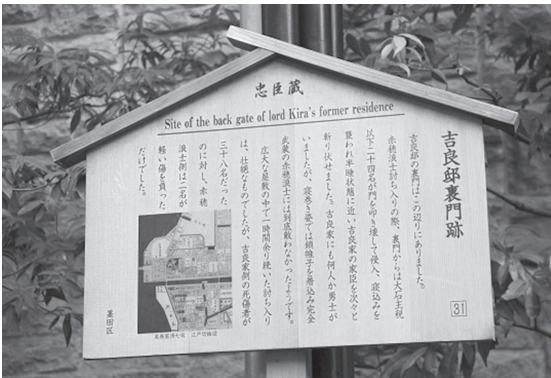 忠臣蔵
Site of the back gate of lord Kira's former residence
吉良邸裏門跡
吉良邸の裏門はこの辺りにありました。
赤穂浪士討ち入りの際、裏門からは大石主税
以下二十四名が門を叩き壊して侵入、寝込みを
襲われ半睡状態に近い吉良家の家臣を次々と
斬り伏せました。吉良家にも何人か勇士が
いましたが、寝巻き姿では鎖帷子を着込み完全
武装の赤穂浪士には到底敵わなかったようです。
広大な屋敷の中で一時間余り続いた討ち入り
は、壮絶なものでしたが、吉良家側の死傷者が
三十八名だった
のに対し、赤穂
浪士側は二名が
軽い傷を負った
だけでした。
墨田区
31